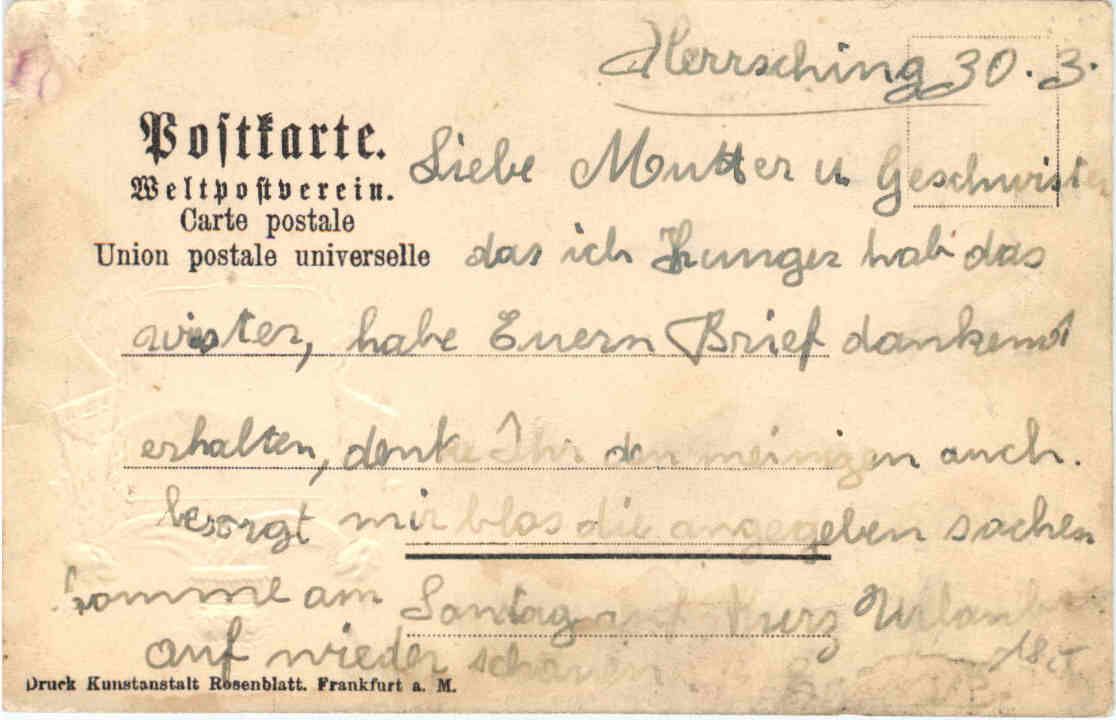 Herrsching 30. 3.
Postkarte.
Weltpostverein.
Carte postale
Union postale universelle
Liebe Mutter u. Geschwister
das ich Hunger hab das
wister, habe Euern Brief dankend
erhalten, denke Ihr den meinigen auch.
besorgt mir blos die angegeben sachen
komme am Sontag kurz Urlaub
auf wieder schauen
Druck Kunstanstalt Rosenblatt. Frankfurt a. M.